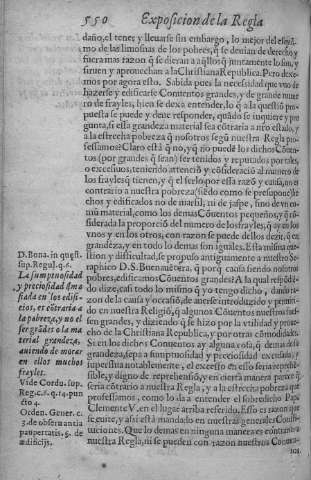 550 Exposicion de la Regla
daño, el tener y lleuarse sin embargo, lo mejor del esquil
mo de las limosnas de los pobres, q̃ se deuian de derecho, y
fuera mas razon q̃ se dieran a aq̃llos q̃ juntamente lo son, y
siruen y aprouechan a la Christiana Republica. Pero dexe-
mos por agora esto. Sabida pues la necessidad que vuo de
hazerse y edificarse Conuentos grandes, y de grande nume
ro de frayles, bien se dexa entender, lo q̃ a la questiõ pro
puesta se puede y deue responder, quãdo se inquiere y pre
gunta, si esta grandeza material sea cõtraria a ñro estado, y
a la estrecha pobreza q̃ nosotros segũ nuestra Regla pro-
fessamos? Claro està q̃ no, y q̃ no puede los dichos Cõuen
tos (por grandes q̃ sean) ser tenidos y reputados por tales,
o excessiuos, teniendo atenciõ y consideraciõ al numero de
los frayles q̃ tienen, y q̃ el serlo por esta razõ y causa, no es
contrario a nuestra pobreza (siẽdo como se presupone he
chos y edificados no de marfil, ni de jaspe, sino de vn co-
mũ material, como los demas Cõuentos pequeños, y q̃ cõ
siderada la proporciõ del numero de los frayles, q̃ ay en los
vnos y en los otros, con razon se puede dellos dezir, q̃ en
grandeza, y en todo lo demas son iguales. Esta misma que
stion y dificultad, se propuso antiguamente a nuestro Se-
raphico D. S. Buenauẽtura, q̃ por q̃ causa siendo nosotros
pobres, edificamos Cõuentos grandes? A la qual respõdiẽ
do dize, casi todo lo mismo q̃ yo tengo dicho, dando ra-
zõ de la causa y ocasiõ, de auerse introduzido y permiti-
do en nuestra Religiõ, q̃ algunos Cõuentos nuestros fuesen
grandes, y diziendo q̃ se hizo por la vtilidad y proue-
cho de la Christiana Republica, y por otras cõmodidades.
Si en los dichos Conuentos ay alguna cosa, q̃ demas de la
grandeza, sepa a sumptuosidad y preciosidad executada, y
superflua notablemente, el excesso en esso seria reprehensi
ble, y digno de reprehensiõ, y en cierta manera parece q̃
seria cõtrario a nuestra Regla, y a la estrecha pobreza que
professamos, como lo da a entender el sobredicho Papa
Clemente V. en el lugar arriba referido. Esso es razon que
se euite, y assi està mandado en nuestras generales Consti-
tuciones. Que lo demas en ninguna manera es contrario a
nuestra Regla, ni se pueden con razon nuestros Conuen-
tos
D. Bona. in quæst.
sup. Regul. q. 6.
La sumptuosidad
y preciosidad dema
siada en los edifi-
cios, es cõtraria a
la pobreza, y no el
ser grãdes o la ma
terial grandeza,
auiendo de morar
en ellos muchos
frayles.
Vide Cordu. sup.
Reg. c. 6. q. 14. pun
cto 4.
Orden. Gener. c.
3. de obseruantia
paupertatis, §. de
ædificijs.